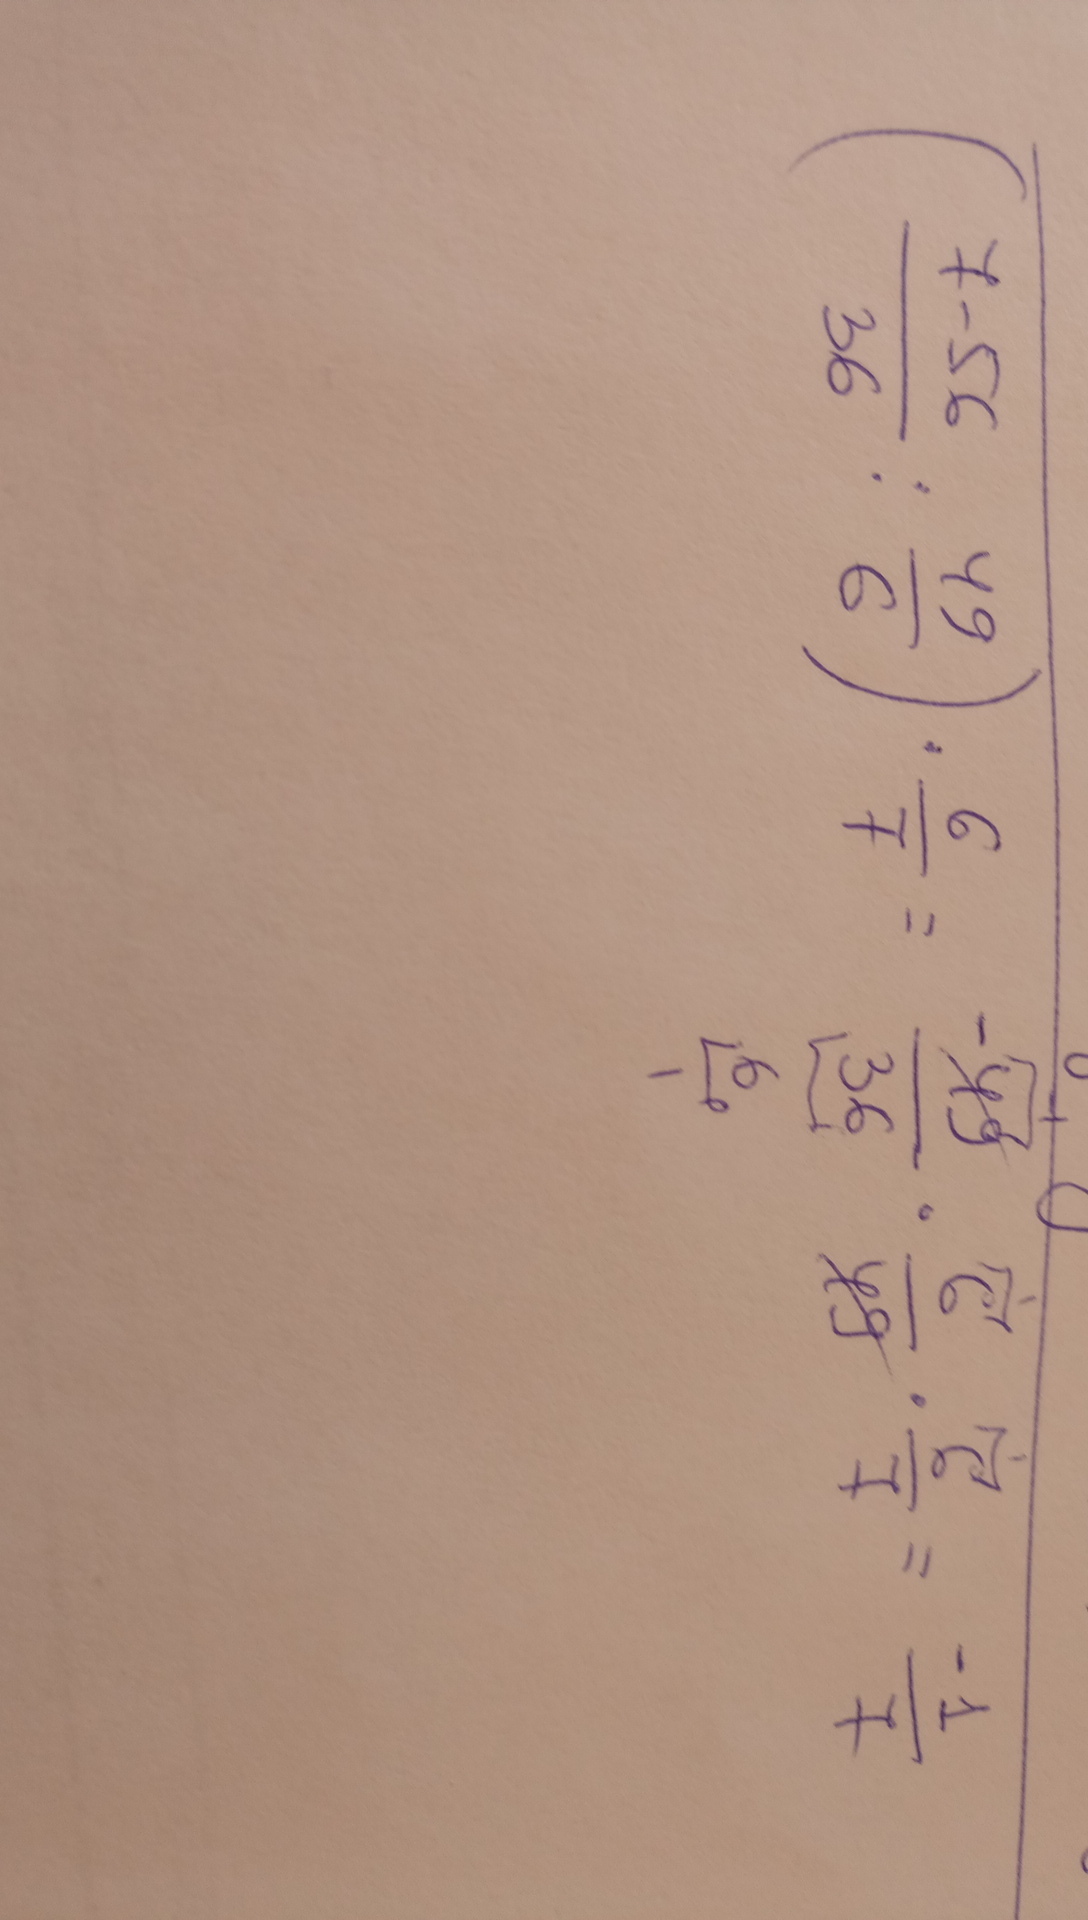 ( 7-56 / 36 : 49 / 6 ) · 6 / 7 = -49 / 36 · 6 / 49 · 6 / 7 = -1 / 7
6
1